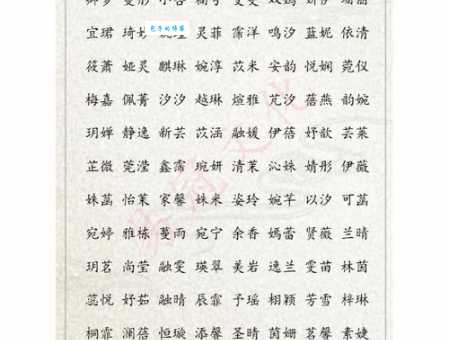 宜珺 琦 灵菲 霈洋 鸣汐 蓝妮 依清
筱萧 娅灵 麒琳 婉淳 苡米 安韵 悦娴 菀仪
梅嘉 佩菁 汐汐 越琳 煊雅 芃汐 蓓燕 韵婉
玥婵 静逸 新芸 苡涵 融媛 伊蓓 妤歆 芸莱
芷微 莞滢 鑫霈 琬妍 清茉 沁姝 婧彤 伊薇
姝菡 怡茉 家馨 姝米 姿玲 婉芊 以汐 可菡
宛婷 雅栋 蔓雨 宛宁 余香 嫣蕾 贤薇 兰晴
玥茗 尚莹 融雯 瑛翠 美岩 逸兰 雯苗 林茵
蕊悦 妤茹 融晴 辰霏 予瑶 相颖 芳雪 梓琳
桐霏 澜蓓 恒璇 添馨 圣晴 茵姗 茗馨 素婕